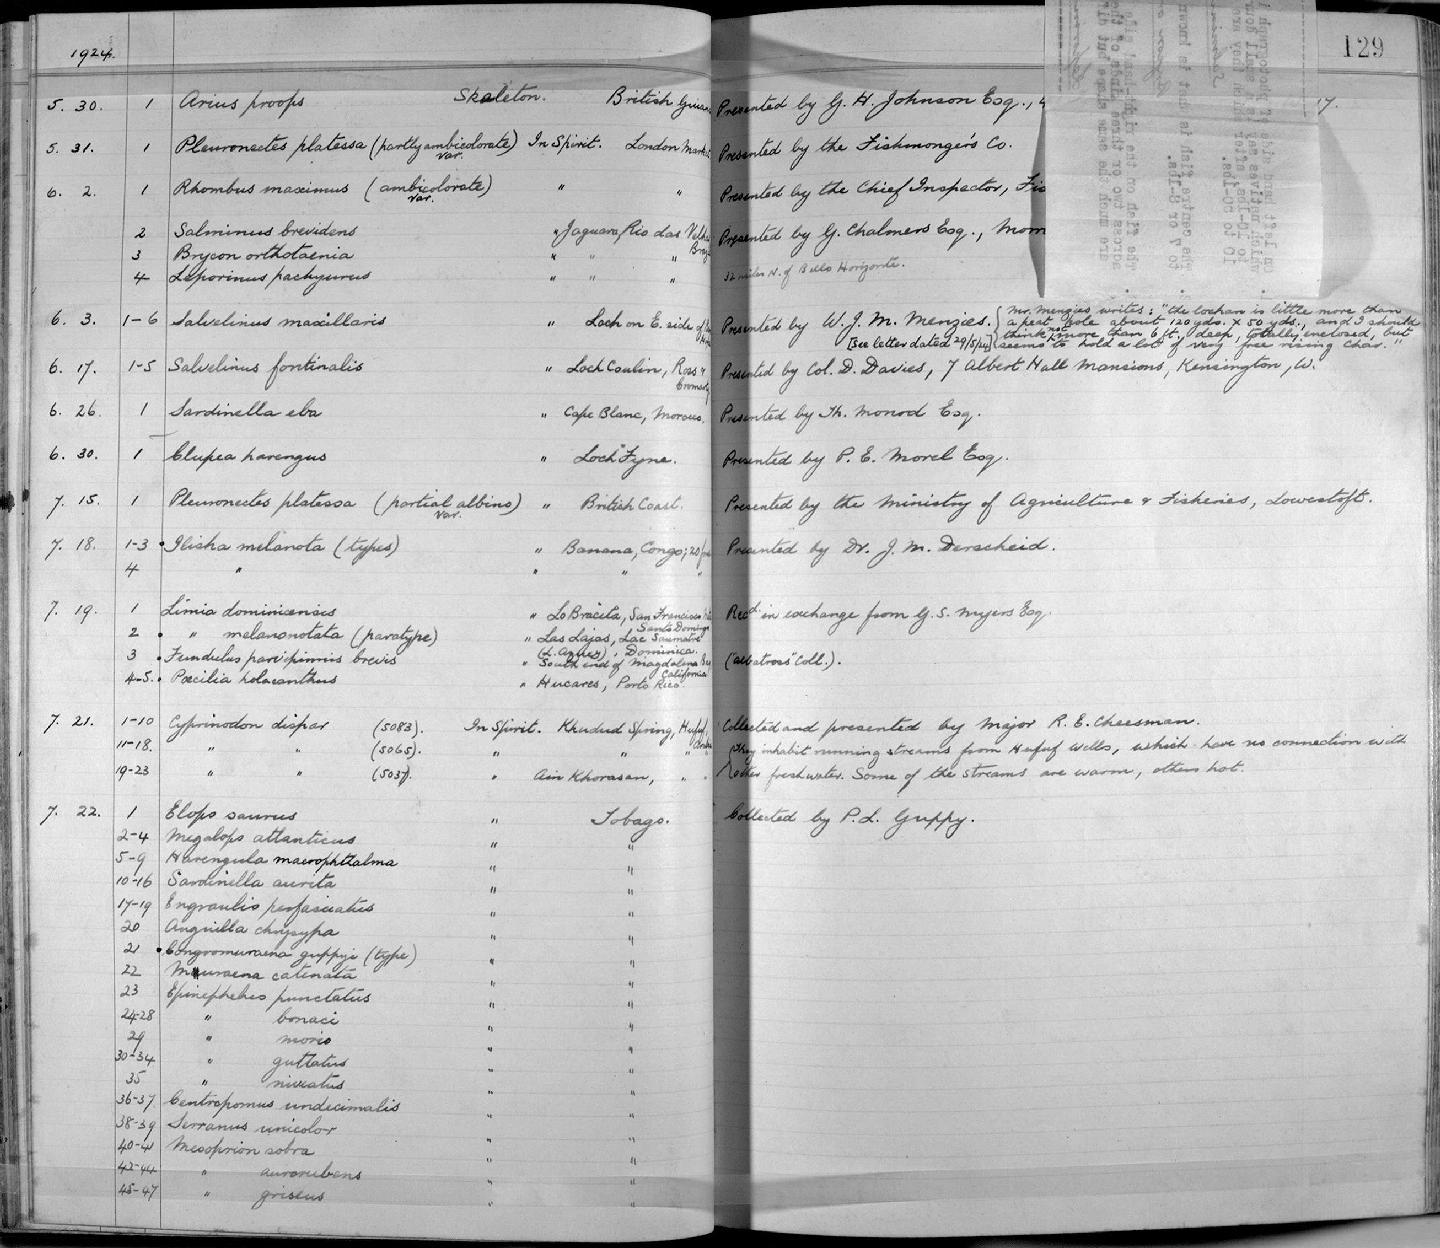 1924.
129
5. 30. 1 Arius proops Skeleton. British Guiana Presented by G. H. Johnson Esq.,
5. 31. 1 Pleuronectes platessa (partly ambicolorate) var. In Spirit. London Market Presented by the Fishmonger's Co.
6. 2. 1 Rhombus maximus (ambicolorate) var. " " Presented by the Chief Inspector,
2 Salminus brevidens " Jaguara, Rio das Velhas Presented by G. Chalmers Esq.,
3 Brycon orthotaenia " " "
4 Leporinus pachyurus " " " 32 miles N. of Bello Horizonte.
6. 3. 1-6 Salvelinus maxillaris " Loch on E. side of Presented by W. J. M. Menzies. [See letter dated 29/5/24]
Mr. Menzies writes: "the lochan is little more than
a peat hole about 120 yds. x 50 yds., and I should
think not more than 6 ft. deep, totally enclosed, but
seems to hold a lot of very free rising Char."
6. 17. 1-5 Salvelinus fontinalis " Loch Coulin, Ross & Cromarty Presented by Col. D. Davies, 7 Albert Hall Mansions, Kensington, W.
6. 26. 1 Sardinella eba " Cape Blanc, Morocco. Presented by Th. Monod Esq.
6. 30. 1 Clupea harengus " Loch Fyne. Presented by P. E. Morel Esq.
7. 15. 1 Pleuronectes platessa (partial albino) var. " British Coast. Presented by the Ministry of Agriculture & Fisheries, Lowestoft.
7. 18. 1-3 Ilisha melanota (types) " Banana, Congo; Presented by Dr. J. M. Derscheid.
4 " " " "
7. 19. 1 Limia dominicensis " Lo Bracita, San Francisco Recd in exchange from G. S. Myers Esq.
2 " melanonotata (paratype) " Las Lajas, Lac Saumatre (L. Azuey), Dominica.
3 Fundulus parvipinnis brevis " South end of Magdalena Bay California ("Albatross" Coll.).
4-5. Pœcilia holacanthus " Hucares, Porto Rico.
7. 21. 1-10 Cyprinodon dispar (5083). In Spirit. Khudud Spring, Hufuf, Collected and presented by Major R. E. Cheesman.
11-18. " " (5065). " " " They inhabit running streams from Hufuf Wells, which have no connection with
19-23 " " (5037). " Ain Khorasan, " " other freshwater. Some of the streams are warm, others hot.
7. 22. 1 Elops saurus " Tobago. Collected by P. L. Guppy.
2-4 Megalops atlanticus " "
5-9 Harengula macrophthalma " "
10-16 Sardinella aurita " "
17-19 Engraulis perfasciatus " "
20 Anguilla chrysypa " "
21 Congromuraena guppyi (type) " "
22 Muraena catenata " "
23 Epinephelus punctatus " "
24-28 " bonaci " "
29 " morio " "
30-34 " guttatus " "
35 " niveatus " "
36-37 Centropomus undecimalis " "
38-39 Serranus unicolor " "
40-41 Mesoprion sobra " "
42-44 " aurorubens " "
45-47 " griseus " "